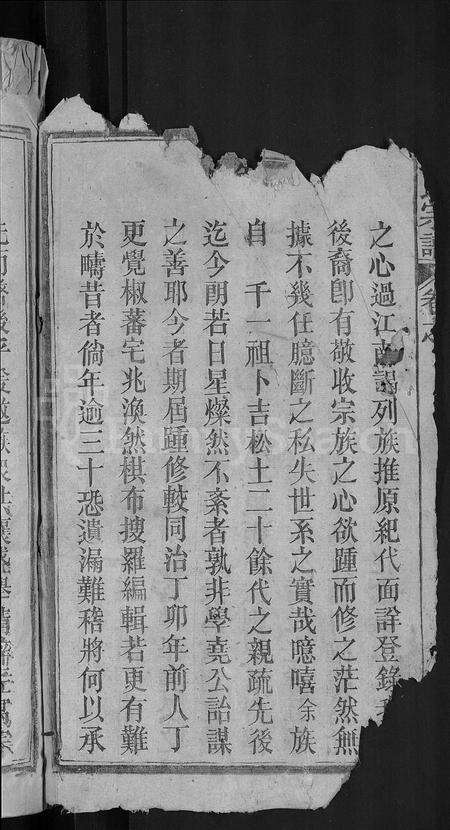 宗譜 卷之
之心過江南謁列族推原紀代面詳登錄
後裔卽有敬收宗族之心欲踵而修之茫然無
據不幾任臆斷之私失世系之實哉噫嘻余族
自 千一祖卜吉松土二十餘代之親疏先後
迄今朗若日星燦然不紊者孰非學堯公詒謀
之善耶今者期屆踵修較同治丁卯年前人丁
更覺椒蕃宅兆渙然棋布搜羅編輯若更有難
於疇昔者倘年逾三十恐遺漏難稽將何以承